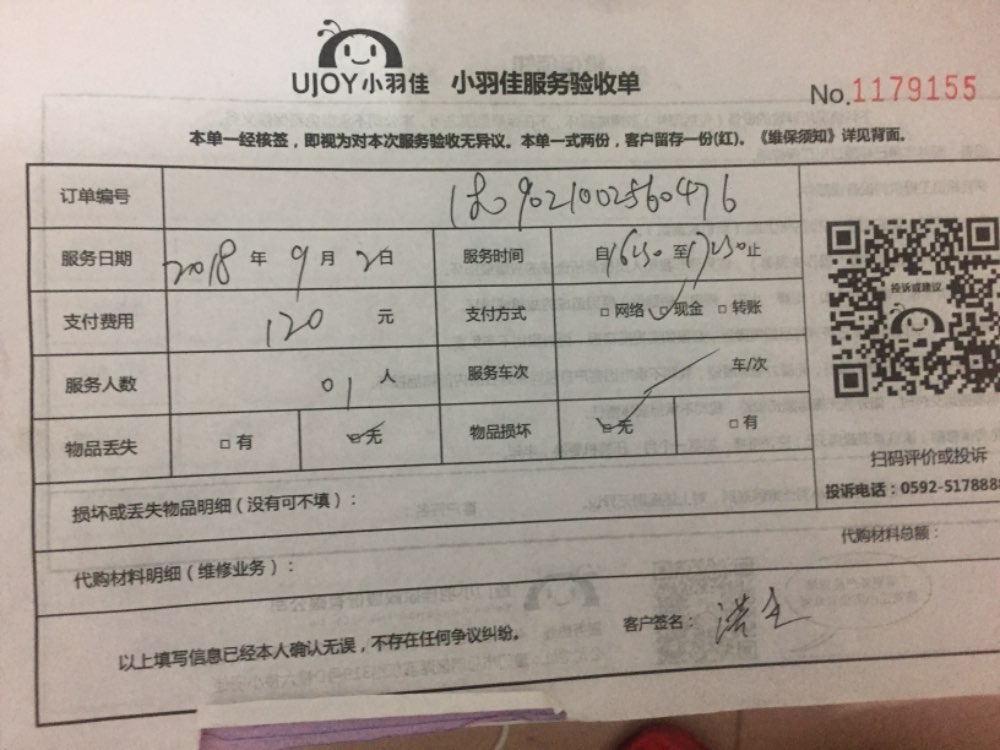 UJOY小羽佳 小羽佳服务验收单
No.1179155
本单一经核签，即视为对本次服务验收无异议。本单一式两份，客户留存一份(红)。《维保须知》详见背面。
订单编号 9021002560476
服务日期 2018 年 9 月 2 日 服务时间 自 16:30 至 17:30 止
支付费用 120 元 支付方式 □ 网络 □ 现金 □ 转账
服务人数 01 人 服务车次 车/次
物品丢失 □ 有 □ 无 物品损坏 □ 无 □ 有
投诉或建议
扫码评价或投诉
投诉电话：0592-5178888
损坏或丢失物品明细（没有可不填）：
代购材料明细（维修业务）：
代购材料总额：
以上填写信息已经本人确认无误，不存在任何争议纠纷。
客户签名：